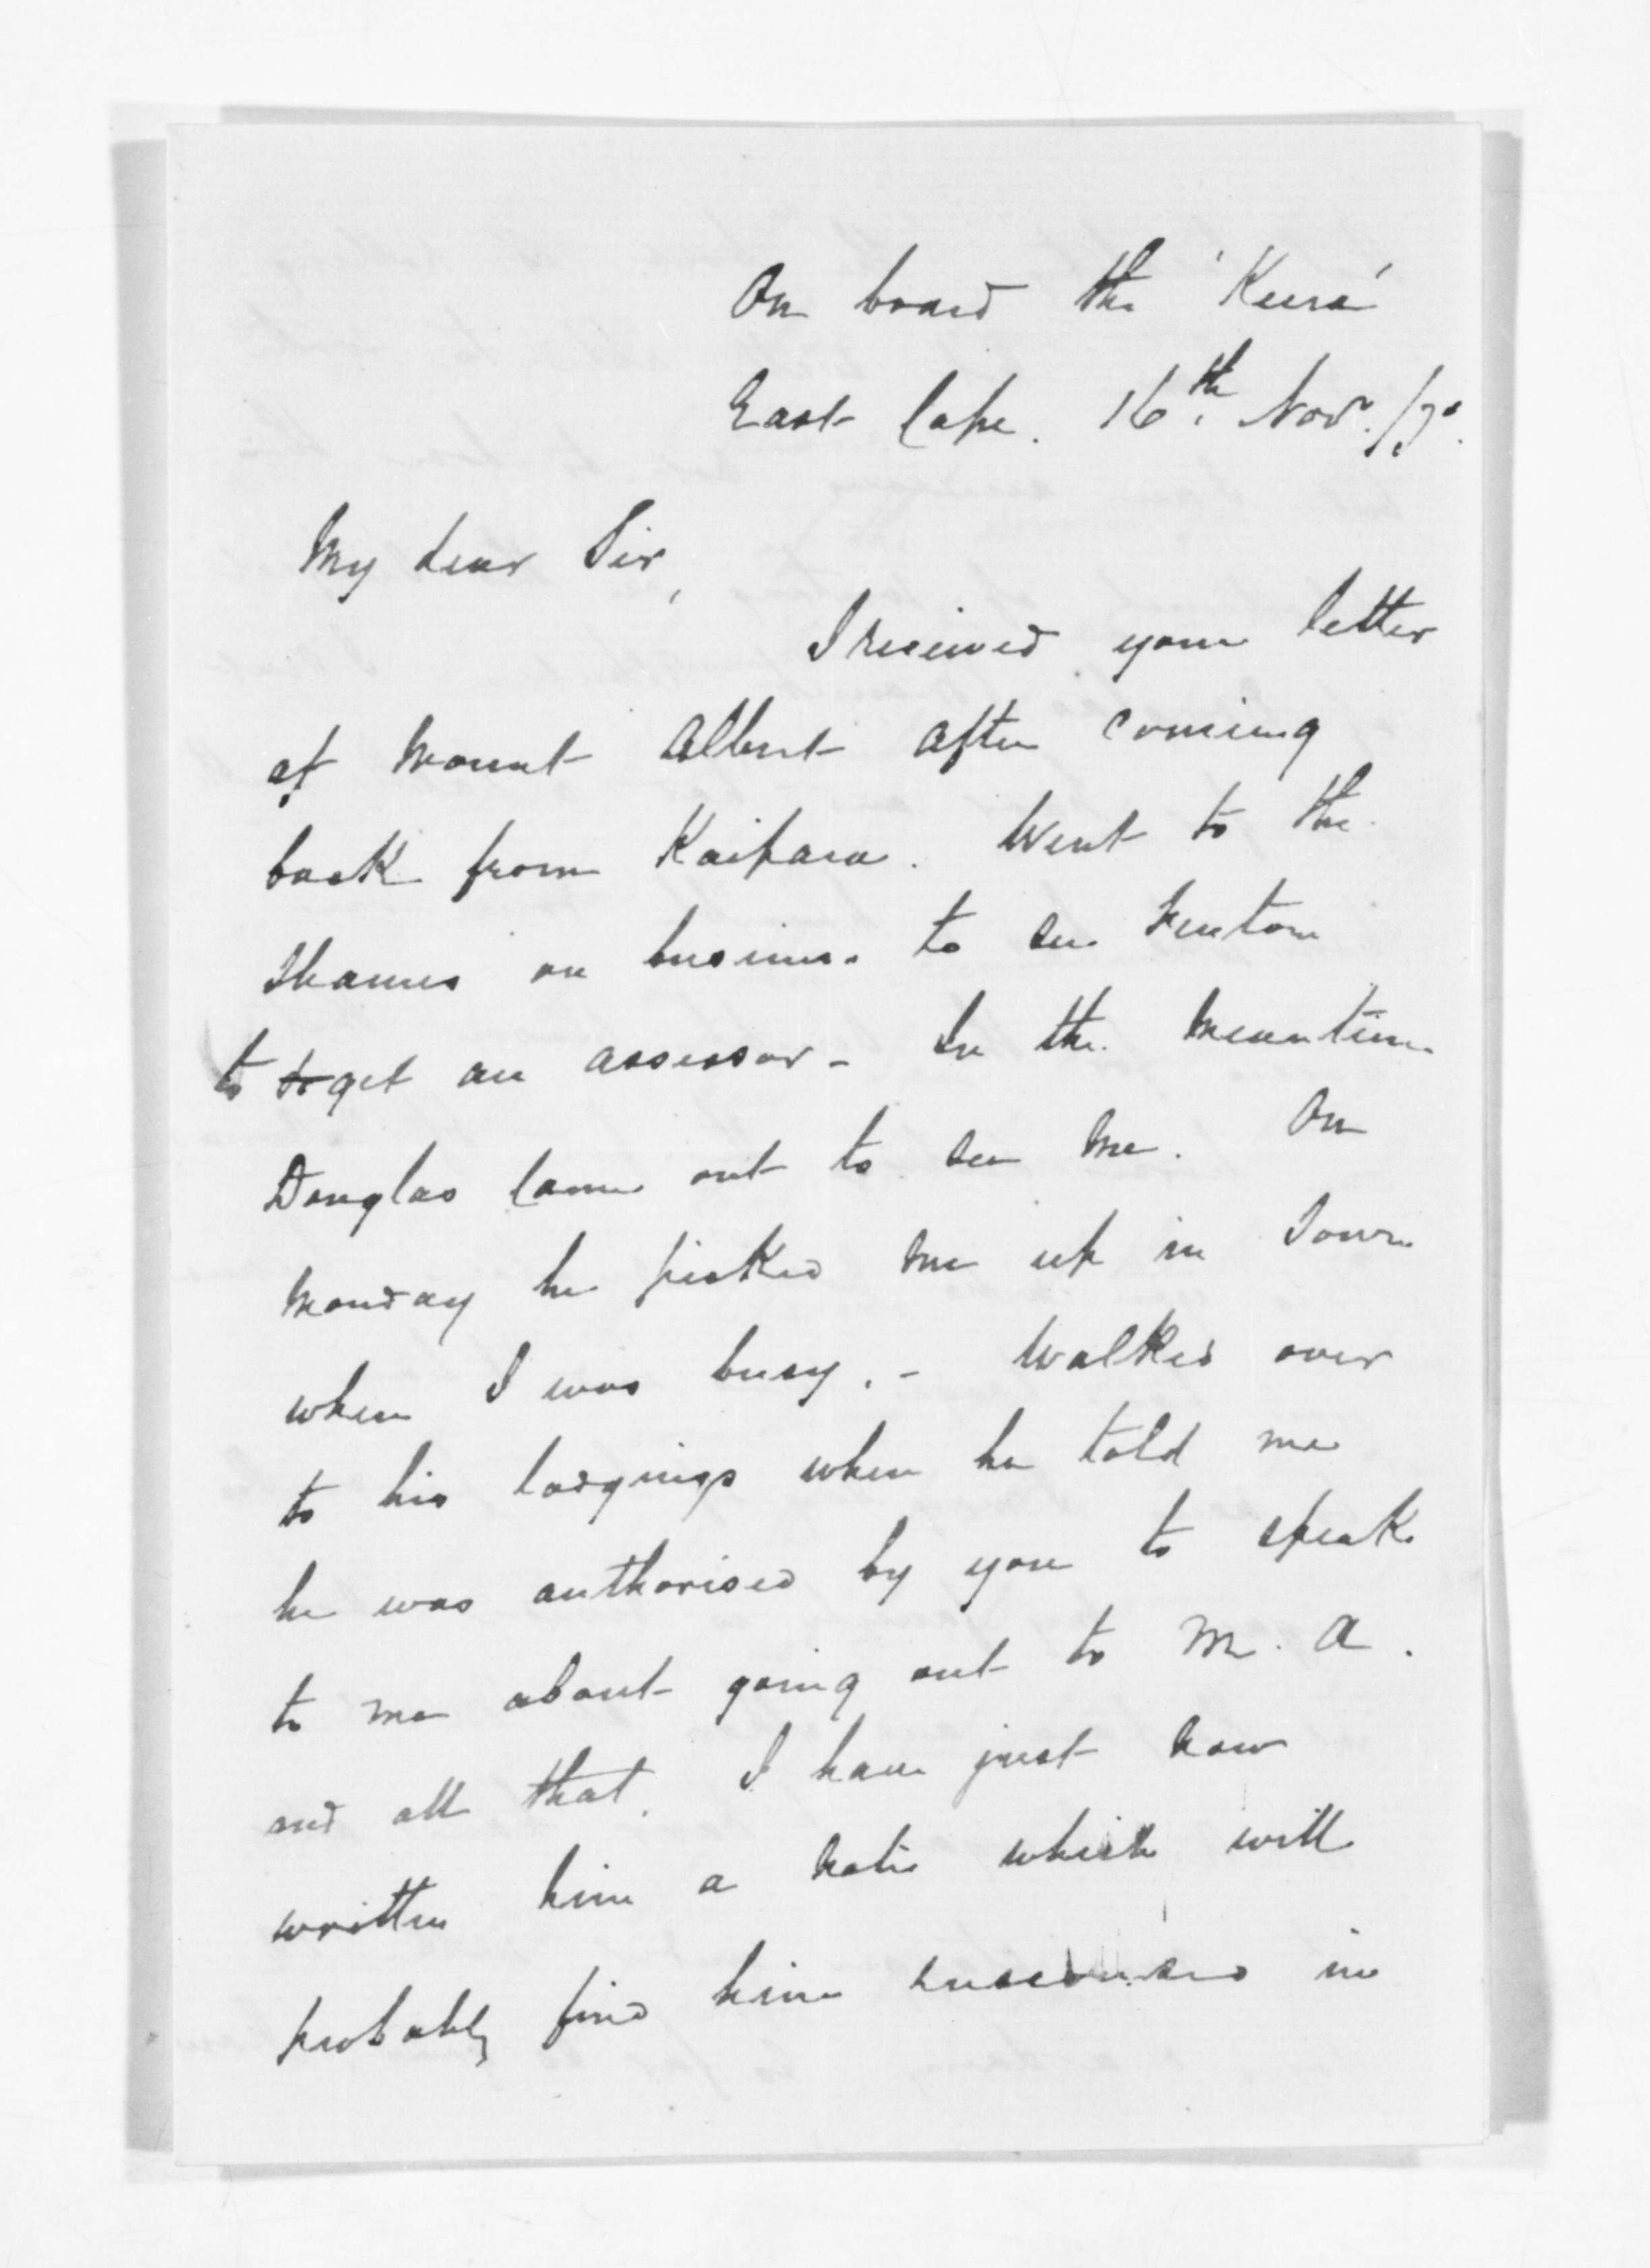 On board the 'Keera'
East Cape. 16th Nov. /70.
My dear Sir,
I received your letter
at Mount Albert after coming
back from Kaipara. Went to the
Thames on business to see Fenton
to to get an assessor - In the meantime
Douglas came out to see me. On
Monday he picked me up in Town
when I was busy. - Walked over
to his lodgings when he told me
he was authorised by you to speak
to me about going out to M. A.
and all that. I have just now
written him a note which will
probably find him in